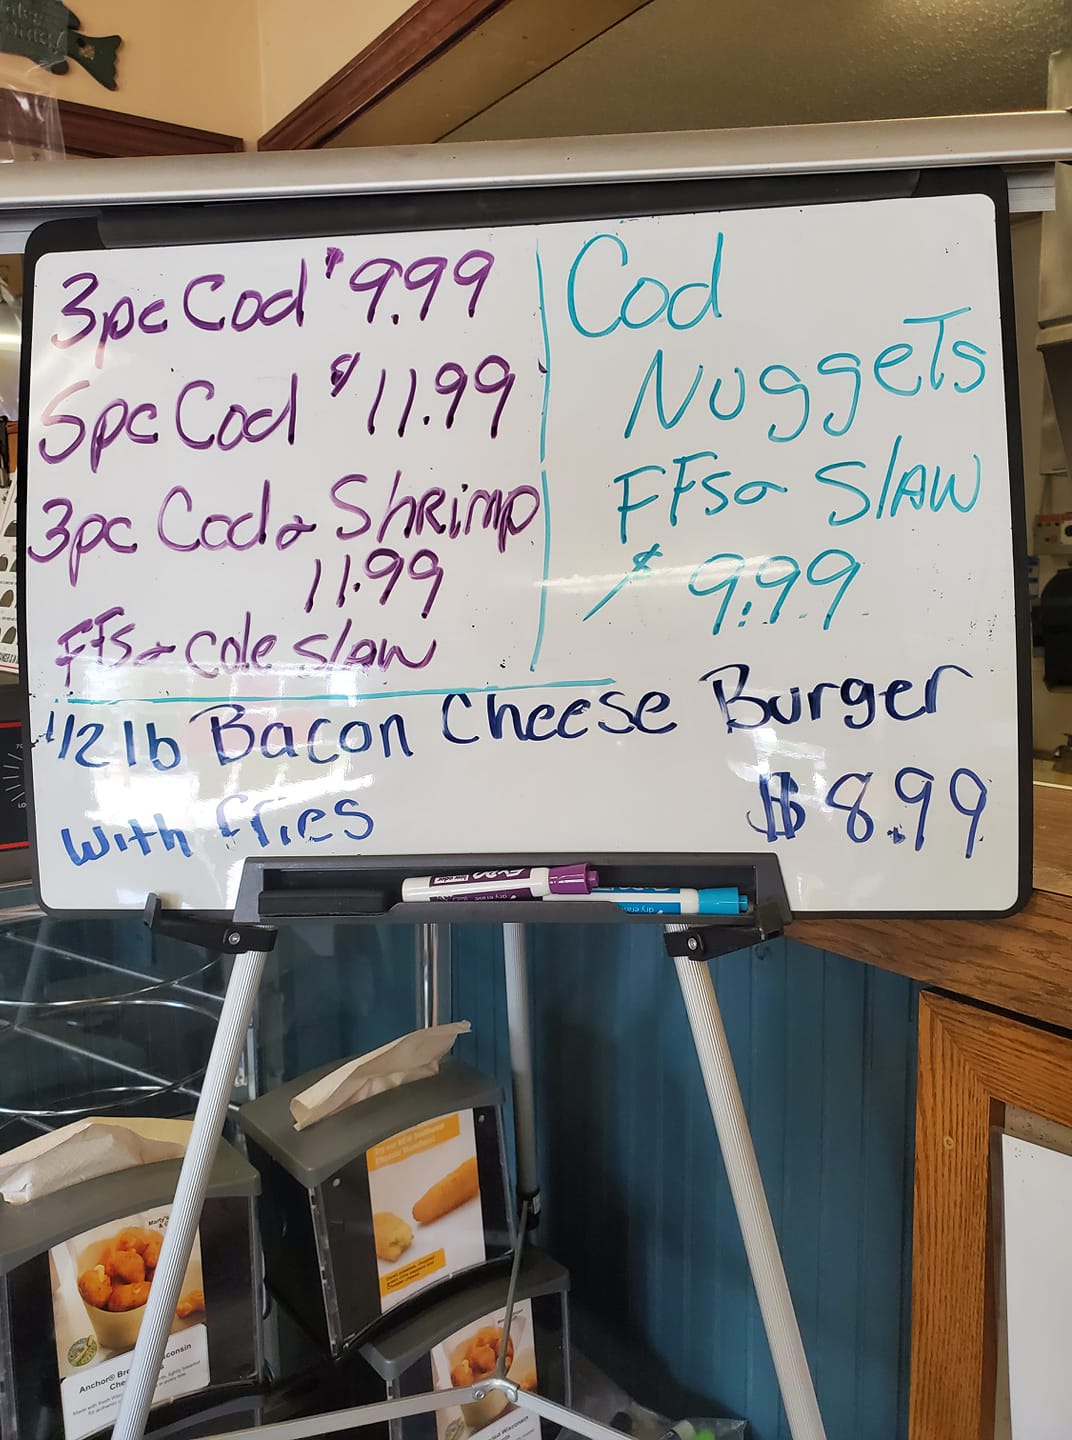 3pc Cod $9.99
5pc Cod $11.99
3pc Cod & Shrimp
11.99
FFs & Cole slaw
Cod
NuggeTs
FFs & SlAW
$9.99
1/2 lb Bacon Cheese Burger
with fries $8.99
EXPO
dry erase
dry erase
Marty's
Anchor®